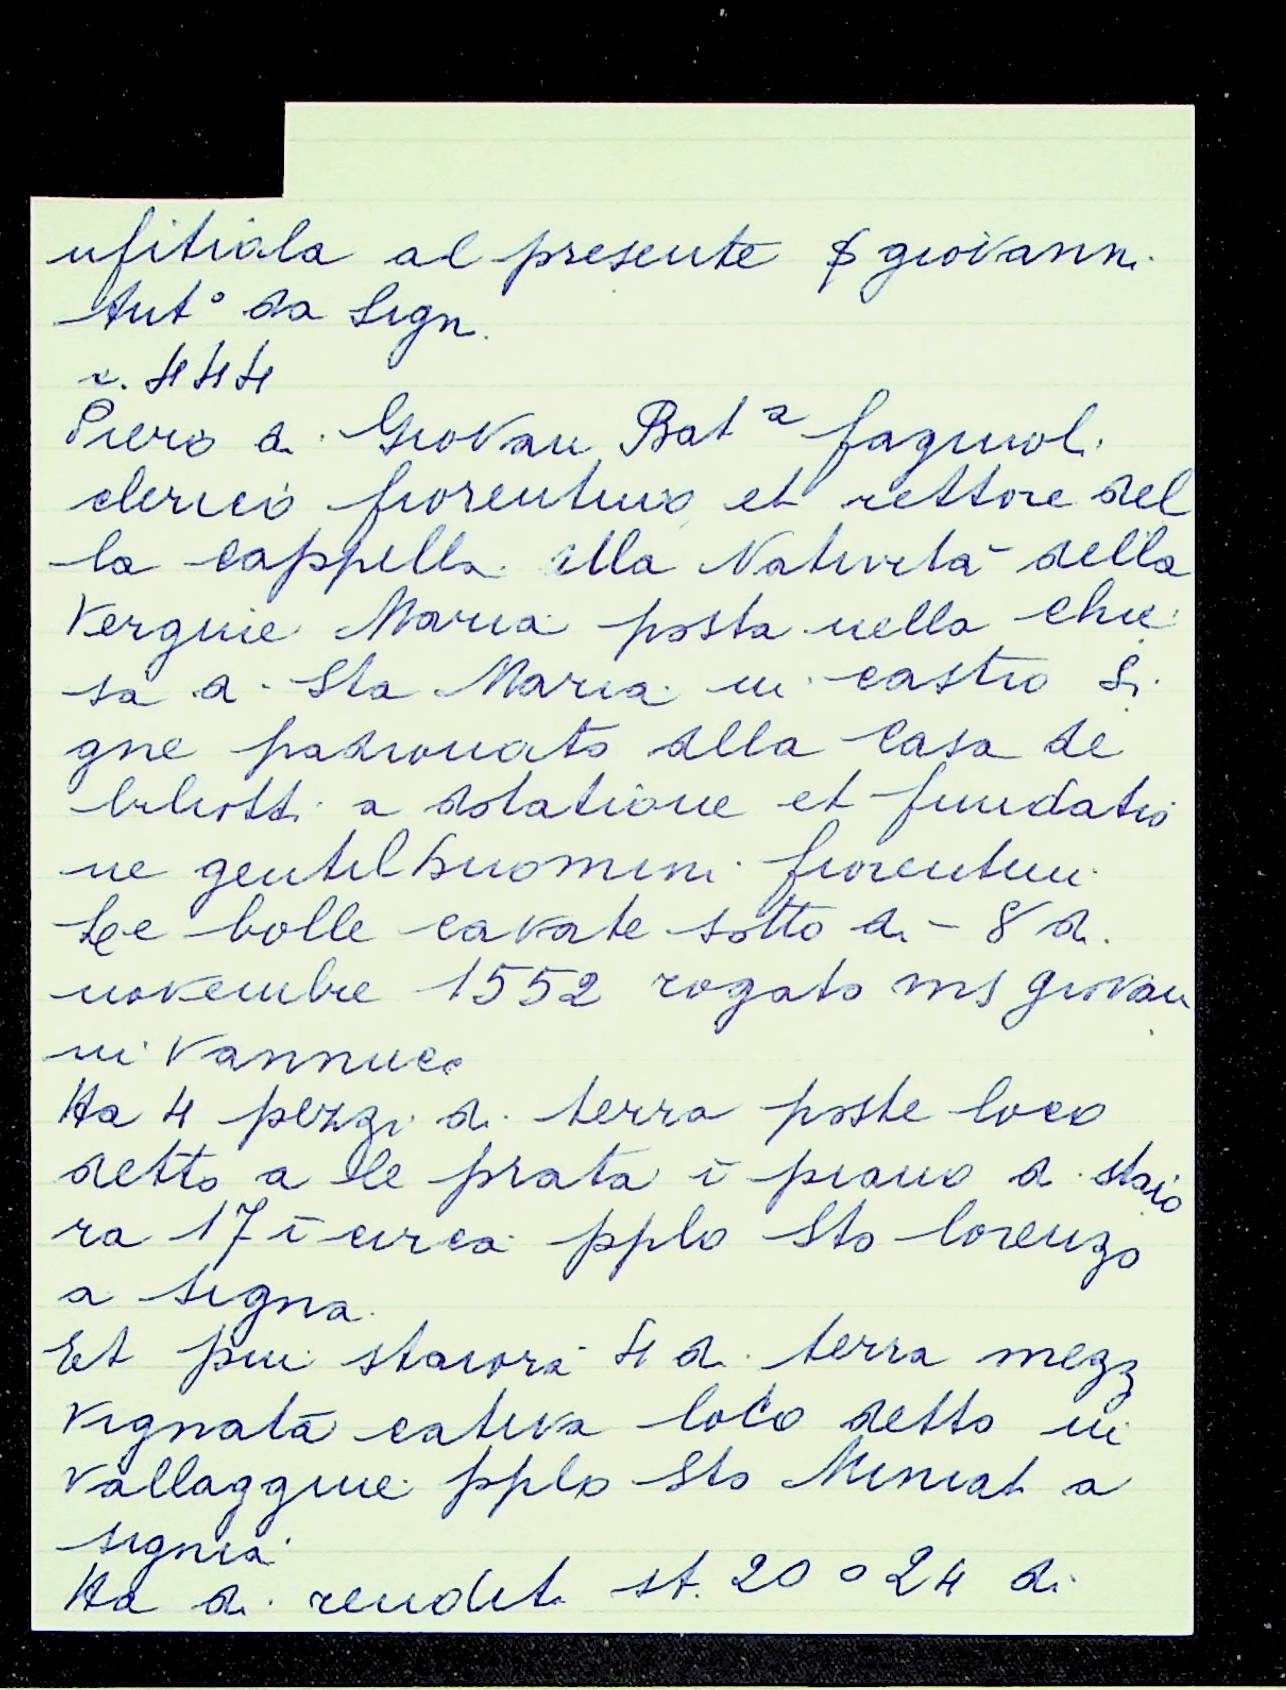 ufitiala al presente giovanni
Ant° da Sign.
c. 444
Piero di Giovan Batᵃ fagiuoli
clerico fiorentino et rettore del
la cappella della Natività della
Vergine Maria posta nella chie
sa di Sta Maria in castro Si
gne padronato della Casa de
biliotti a dotatione et fundatio
ne gentilhuomini fiorentini
Le bolle cavate sotto di - 8 di
novembre 1552 rogato ms giovan
ni Vannucci
Ha 4 pezzi di terra poste loco
detto a le prata ī piano di staio
ra 17 ī circa pplo Sto lorenzo
a signa.
Et piu staiora 4 di terra mezz
vignata cativa loco detto in
vallaggine pplo Sto Miniat a
signia
Ha di rendit. st. 20 o 24 di